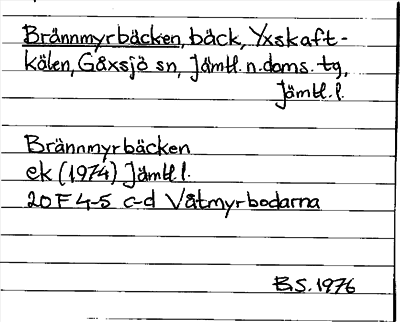 Brännmyrbäcken, bäck, Yxskaft-
kölen, Gåxsjö sn, Jämtl. n. doms. tg,
Jämtl. l.
Brännmyrbäcken
ek (1974) Jämtl l.
20F 4-5 c-d Våtmyrbodarna
B.S. 1976